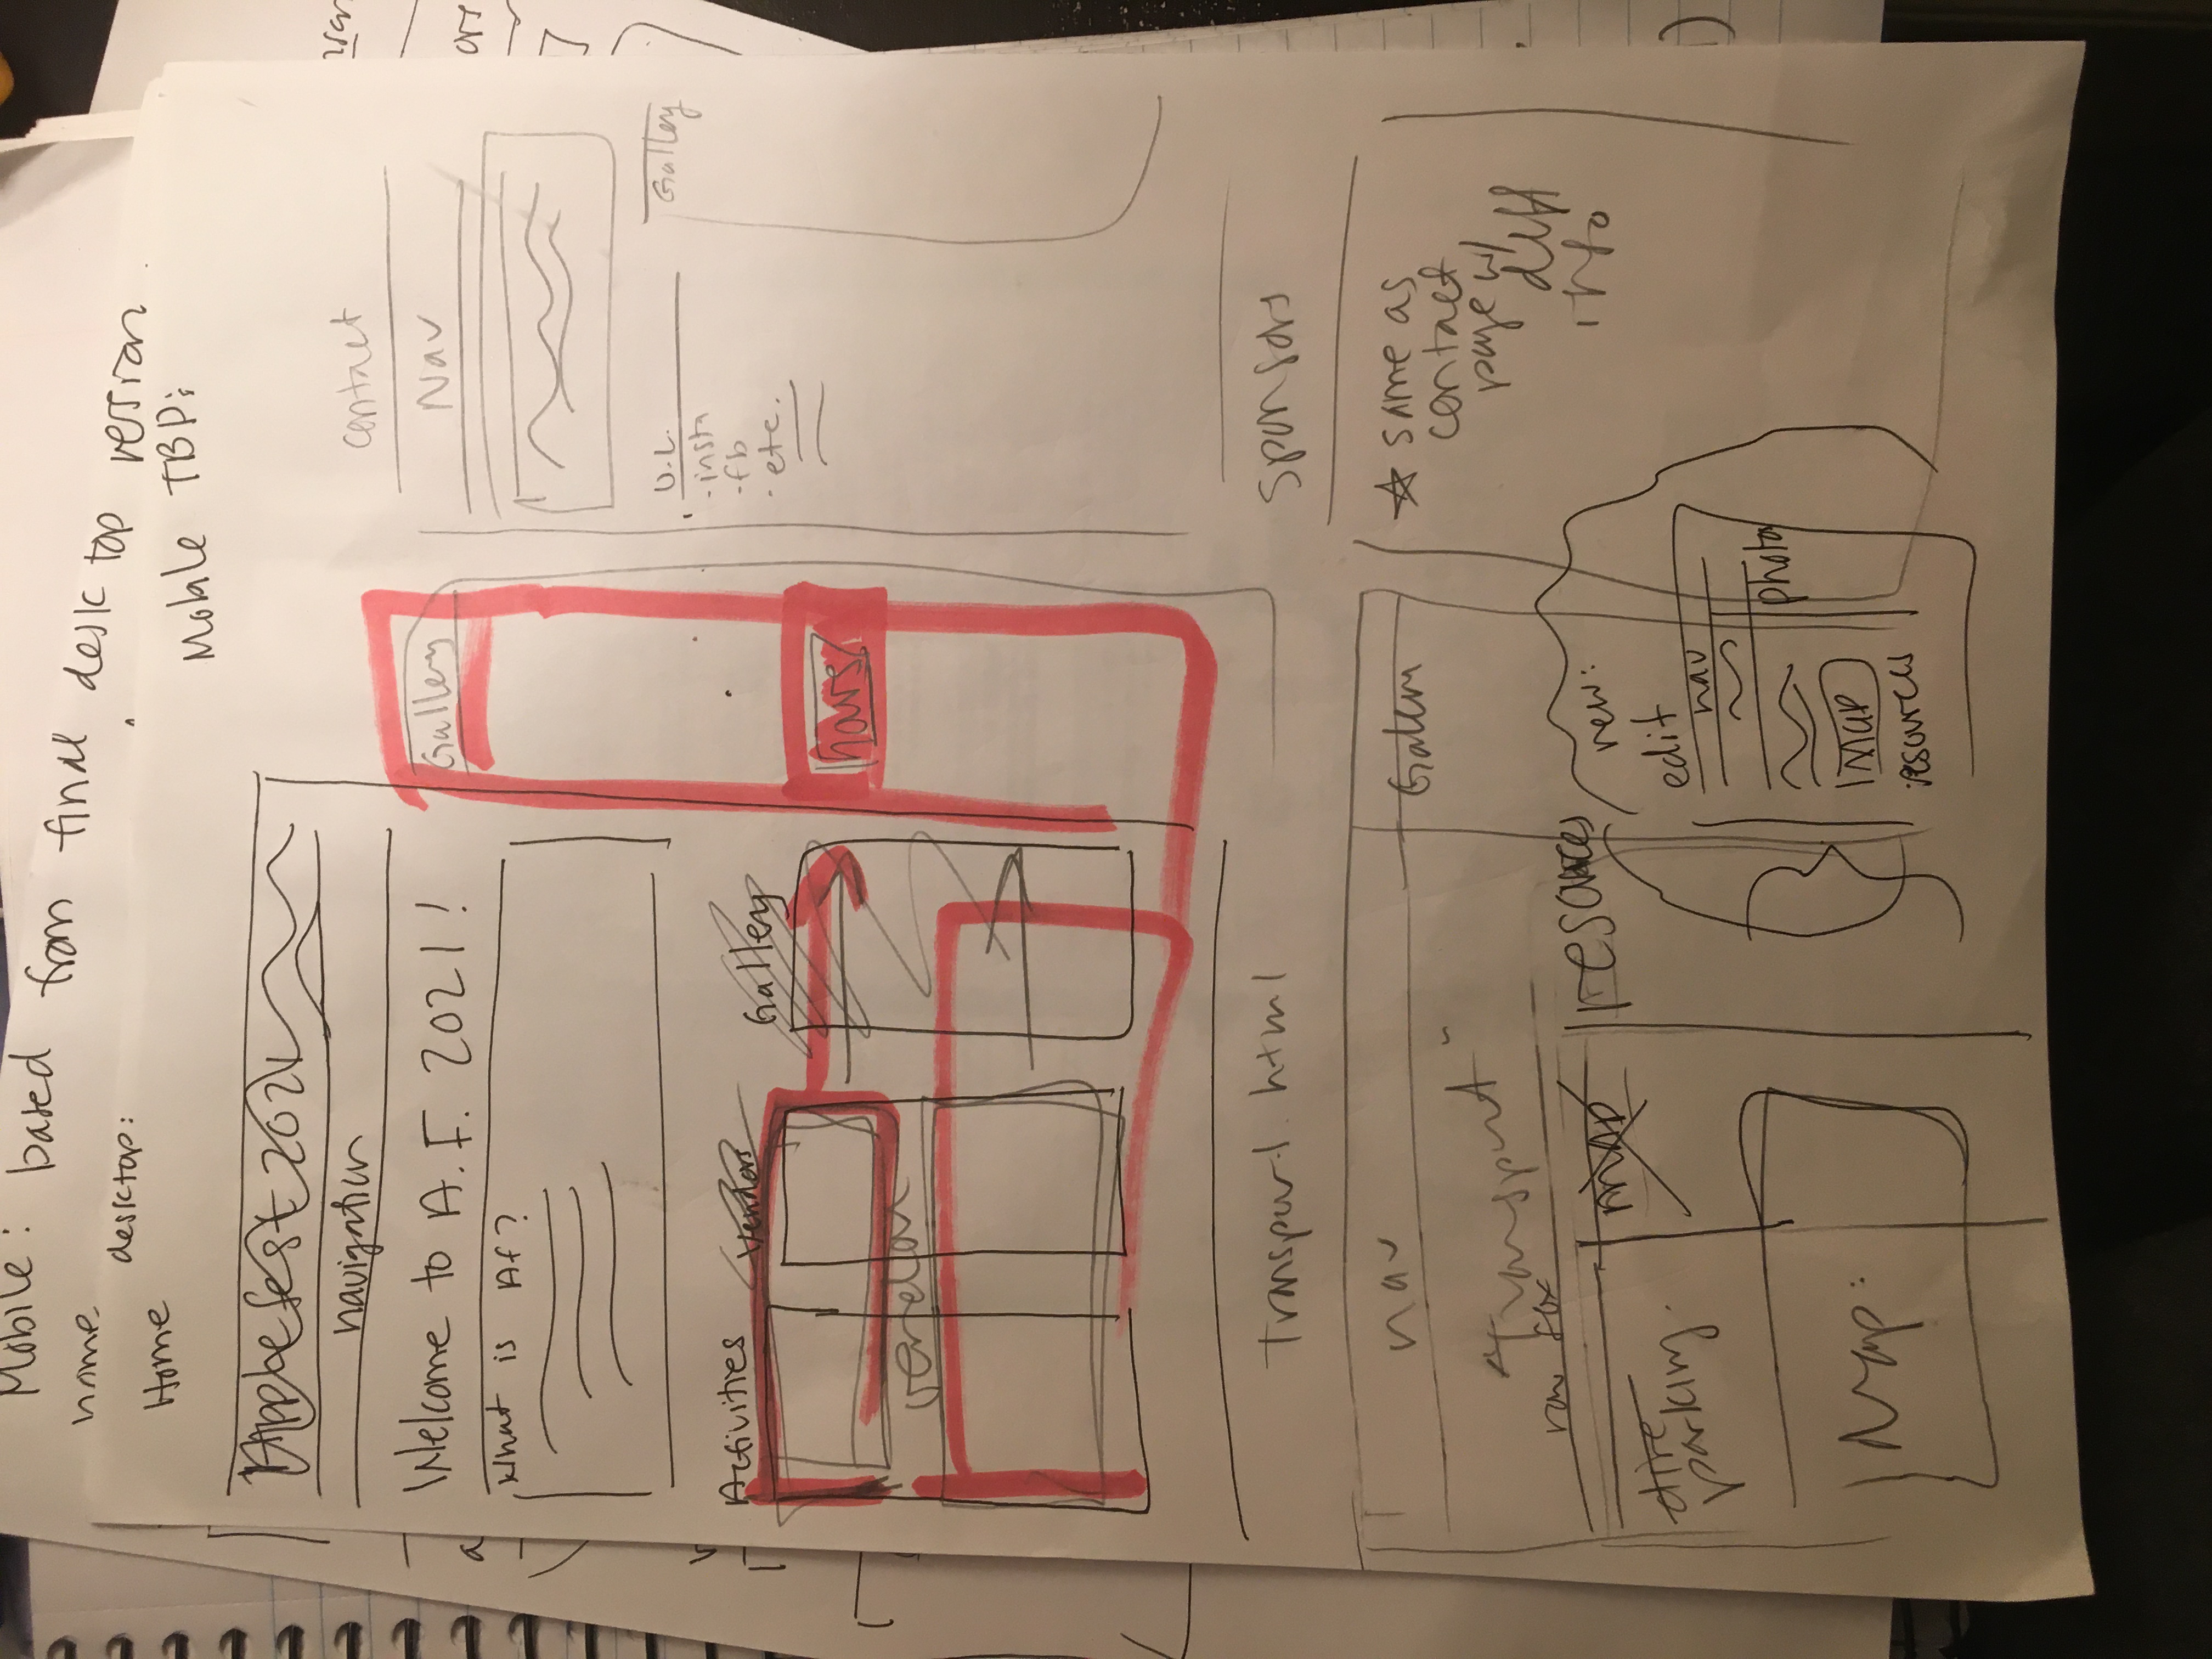 Mobile: based from final desktop version.
home
desktop:
Home
Mobile TBD:
Applefest 2021
navigation
Welcome to A.F. 2021!
What is Af?
Activities
Vendors
Gallery
vendor
Gallery
hours
contact
Nav
U.L.
- insta
- fb
- etc.
Gallery
Transport.html
nav
Gallery
"Transport"
row
map
resources
dire
parking.
Map:
new:
edit
nav
photo
MAP
resources
Sponsors
☆ same as
contact
page w/
diff
info